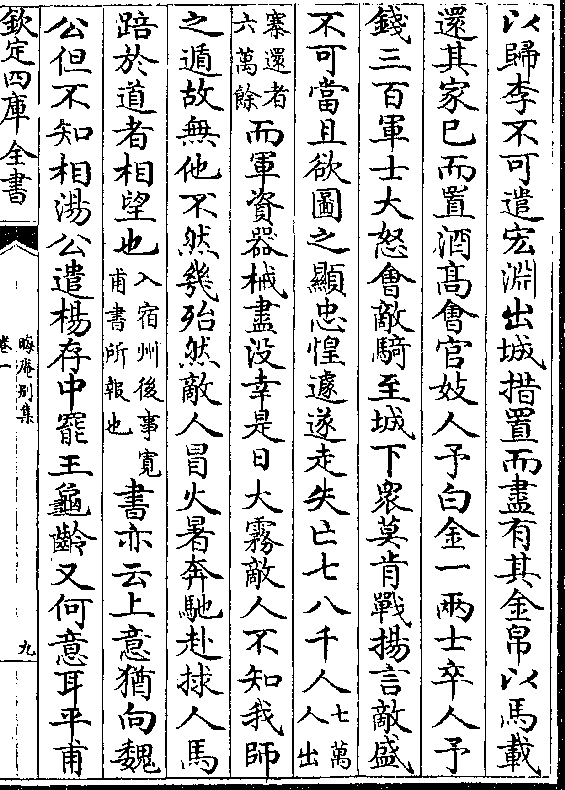 以歸李不可遣宏淵出城措置而盡有其金帛以馬載
還其家已而置酒髙㑹官妓人予白金一兩士卒人予
錢三百軍士大怒㑹敵騎至城下衆莫肯戰揚言敵盛
不可當且欲圖之顯忠惶遽遂走失亡七八千人七萬人出
寨還者六萬餘而軍資器械盡没幸是日大霧敵人不知我師
之遁故無他不然幾殆然敵人冒火暑奔馳赴捄人馬
踣於道者相望也入宿州後事寛甫書所報也書亦云上意猶向魏
公但不知相湯公遣楊存中罷王龜齡又何意耳平甫
欽定四庫全書
晦庵别集
卷一
九